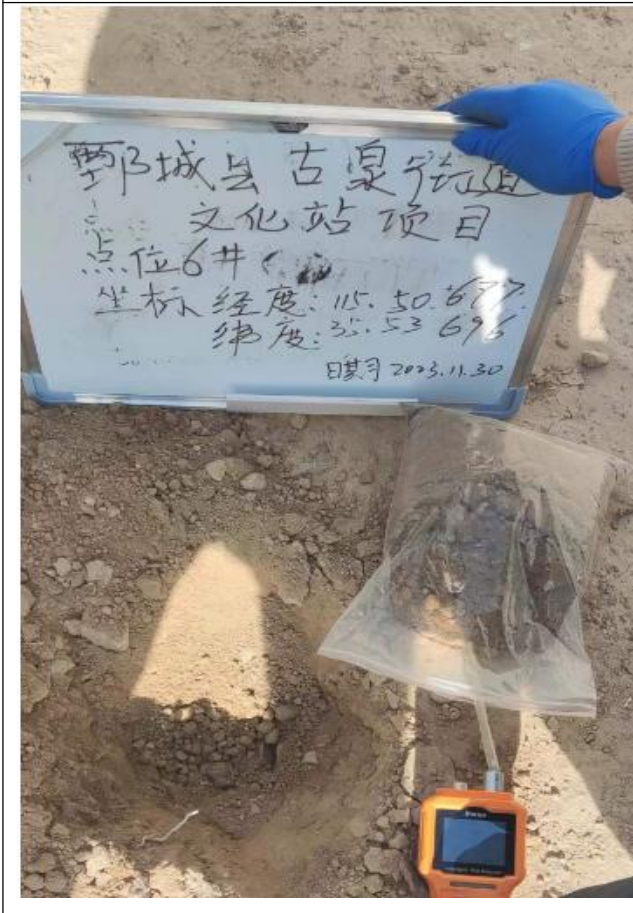 鄄城县古泉街道
文化站项目
点位6#
坐标经度:115.50.677
纬度:35.53696
日期 2023.11.30